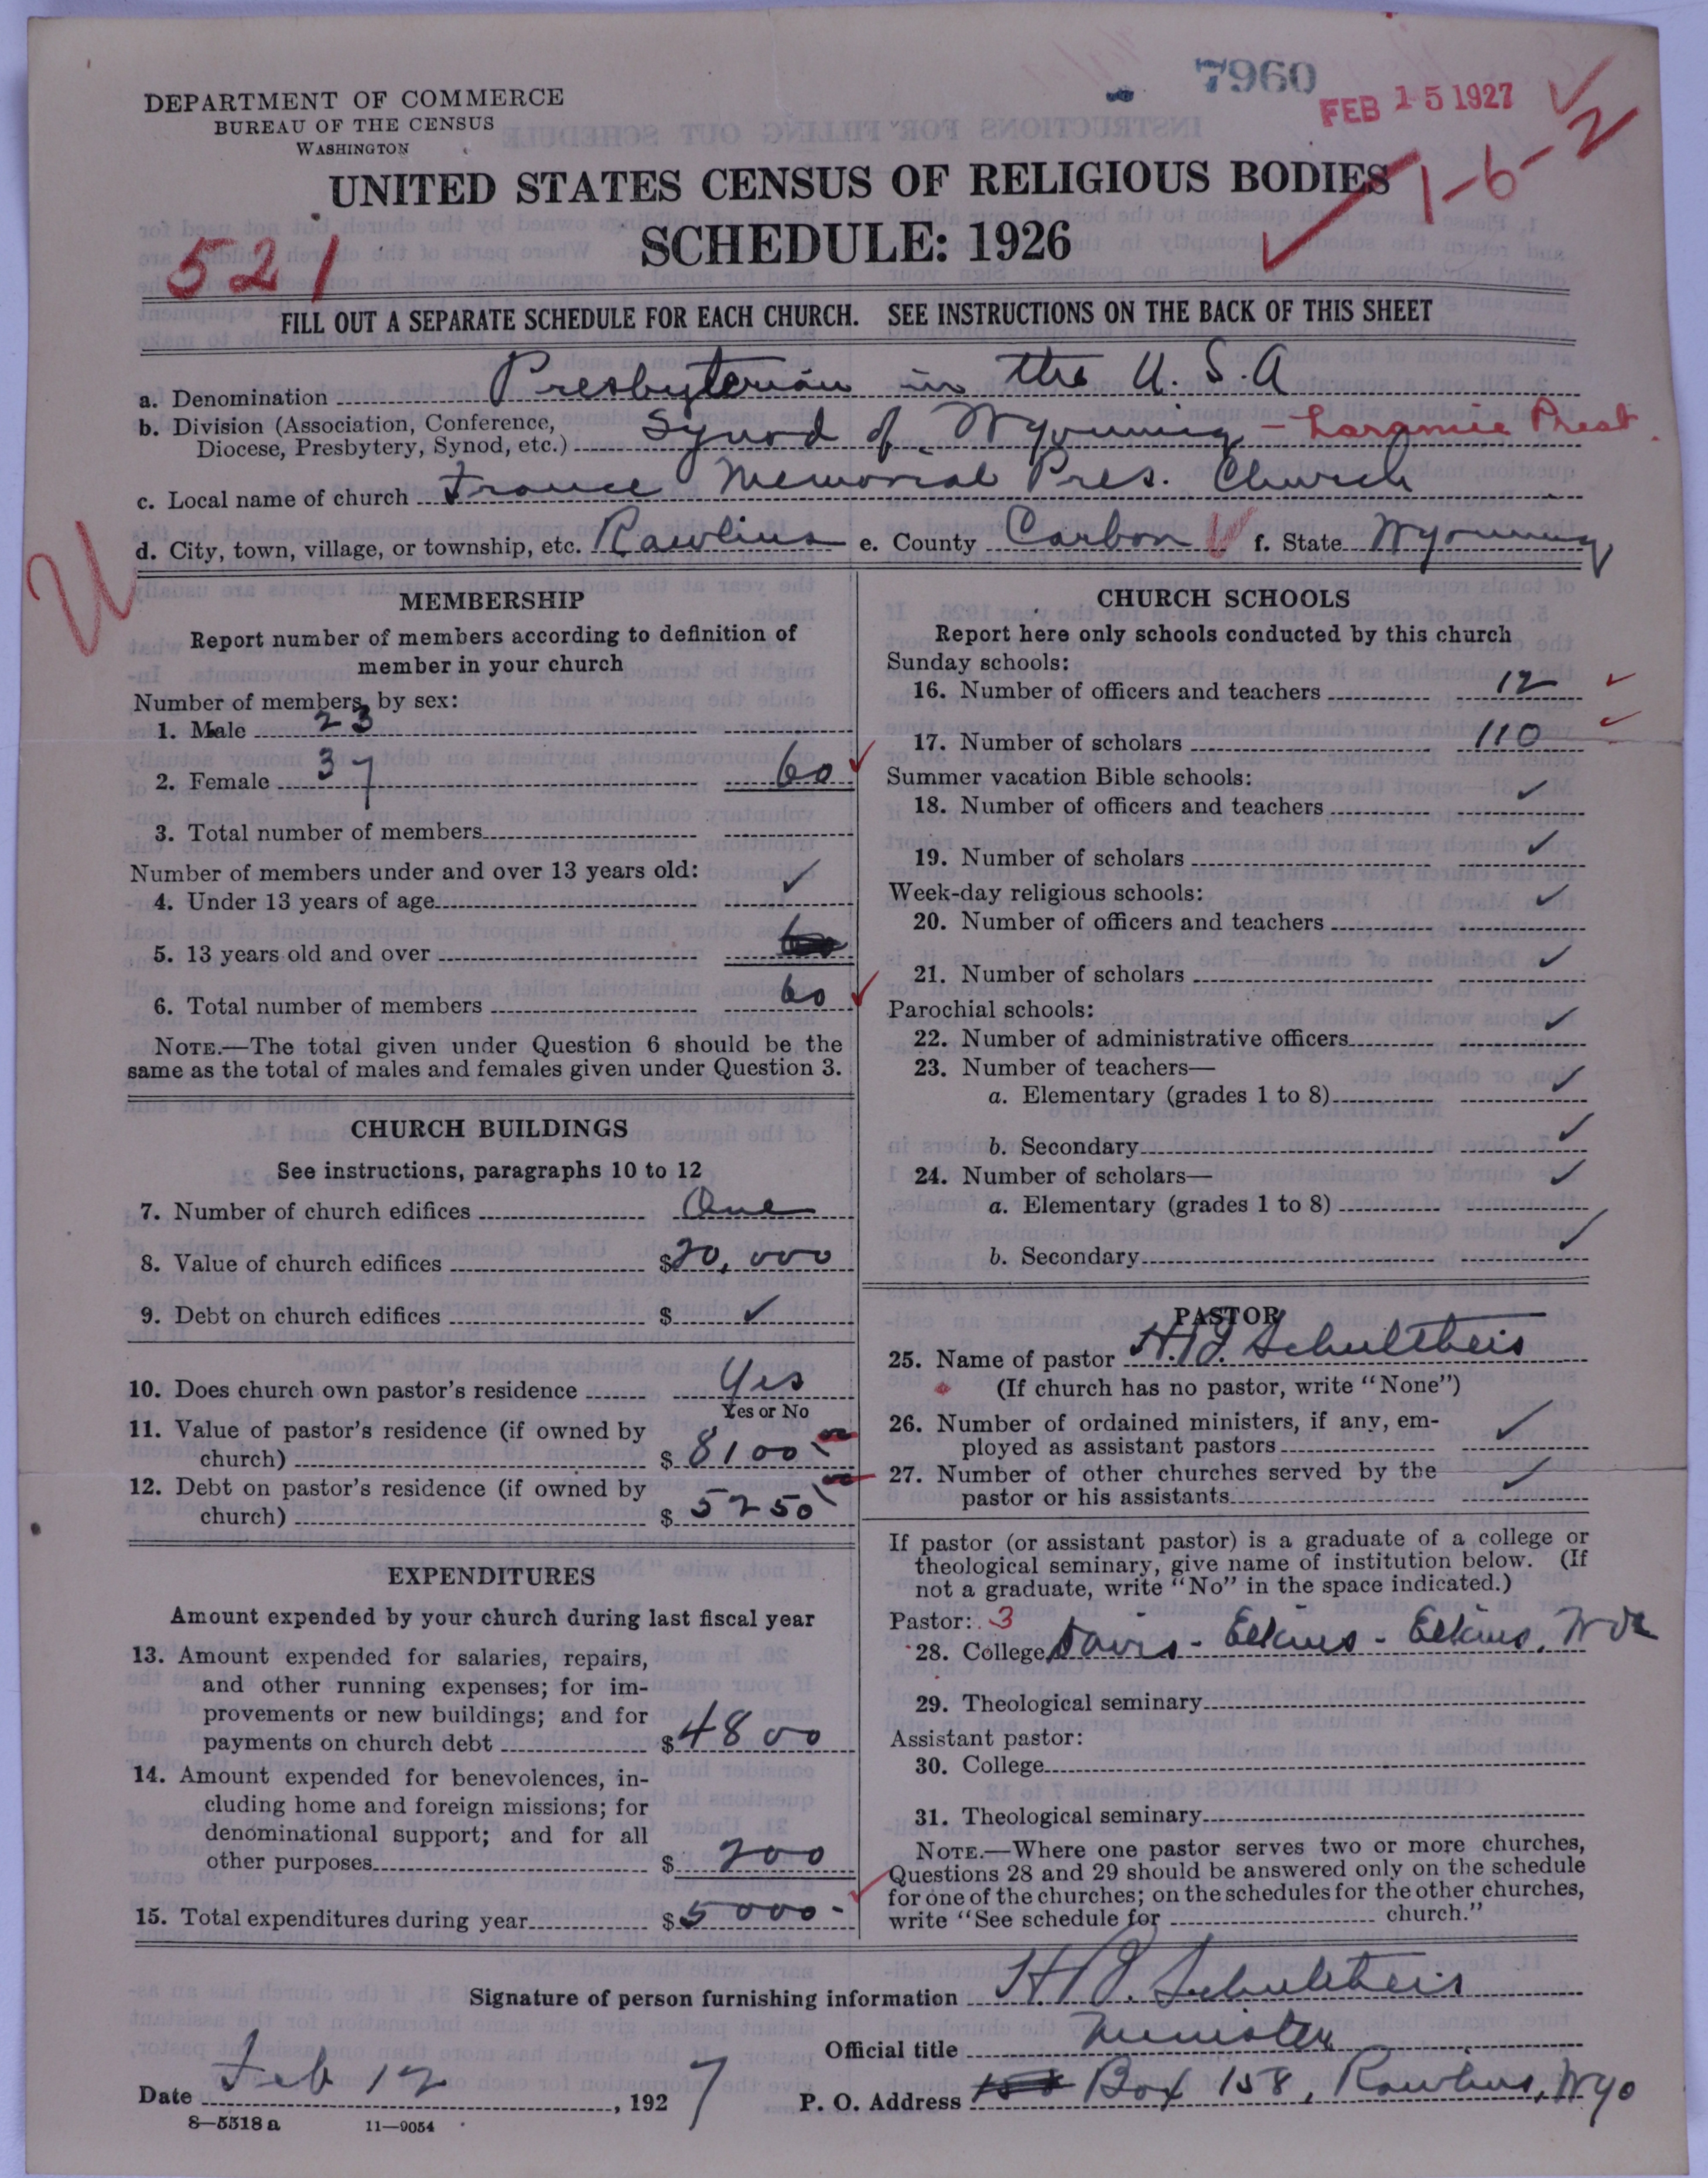 7960
FEB 15 1927
DEPARTMENT OF COMMERCE
BUREAU OF THE CENSUS
WASHINGTON
1-6-2
UNITED STATES CENSUS OF RELIGIOUS BODIES
SCHEDULE: 1926
521
FILL OUT A SEPARATE SCHEDULE FOR EACH CHURCH. SEE INSTRUCTIONS ON THE BACK OF THIS SHEET
a. Denomination Presbyterian in the U.S.A
b. Division (Association, Conference,
Diocese, Presbytery, Synod, etc.) Synod of Wyoming - Laramie Presb.
c. Local name of church France Memorial Pres. Church
d. City, town, village, or township, etc. Rawlins e. County Carbon f. State Wyoming
MEMBERSHIP
Report number of members according to definition of
member in your church
Number of members, by sex:
1. Male 23
2. Female 37 60
3. Total number of members
Number of members under and over 13 years old:
4. Under 13 years of age ✓
5. 13 years old and over
6. Total number of members 60
NOTE.—The total given under Question 6 should be the
same as the total of males and females given under Question 3.
CHURCH BUILDINGS
See instructions, paragraphs 10 to 12
7. Number of church edifices One
8. Value of church edifices $20,000
9. Debt on church edifices $ ✓
10. Does church own pastor's residence Yes
Yes or No
11. Value of pastor's residence (if owned by
church) $ 8100
12. Debt on pastor's residence (if owned by
church) $ 5250
EXPENDITURES
Amount expended by your church during last fiscal year
13. Amount expended for salaries, repairs,
and other running expenses; for im-
provements or new buildings; and for
payments on church debt $4800
14. Amount expended for benevolences, in-
cluding home and foreign missions; for
denominational support; and for all
other purposes $ 200
15. Total expenditures during year $5000-
CHURCH SCHOOLS
Report here only schools conducted by this church
Sunday schools:
16. Number of officers and teachers 12 ✓
17. Number of scholars 110 ✓
Summer vacation Bible schools:
18. Number of officers and teachers ✓
19. Number of scholars ✓
Week-day religious schools:
20. Number of officers and teachers ✓
21. Number of scholars ✓
Parochial schools:
22. Number of administrative officers ✓
23. Number of teachers—
a. Elementary (grades 1 to 8) ✓
b. Secondary ✓
24. Number of scholars— ✓
a. Elementary (grades 1 to 8)
b. Secondary ✓
PASTOR
25. Name of pastor H.J. Schultheis
(If church has no pastor, write "None")
26. Number of ordained ministers, if any, em-
ployed as assistant pastors ✓
27. Number of other churches served by the
pastor or his assistants ✓
If pastor (or assistant pastor) is a graduate of a college or
theological seminary, give name of institution below. (If
not a graduate, write "No" in the space indicated.)
Pastor: 3
28. College Davis - Elkins - Elkins, W Va
29. Theological seminary
Assistant pastor:
30. College
31. Theological seminary
NOTE.—Where one pastor serves two or more churches,
Questions 28 and 29 should be answered only on the schedule
for one of the churches; on the schedules for the other churches,
write "See schedule for church."
Signature of person furnishing information H.J. Schultheis
Official title Minister
Date Feb 12, 1927 P. O. Address Box 158, Rawlins, Wyo
8—5518 a 11—9054